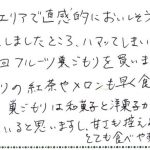 エリアで直感的においしそう
しましたところ、ハマッてしまい
回フルーツ巣ごもりを買いま
りの紅茶やメロンも早く食
巣ごもりは和菓子と洋菓子か
いると思いますし、甘さも控え
とても食べや